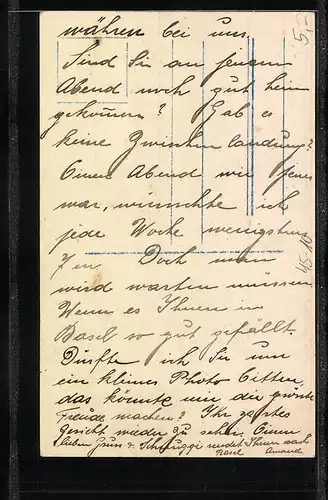 währen bei uns.
Sind Sie an jenem
Abend noch gut heim
gekommen? Gab es
keine Zwischenlandung?
Einen Abend wie jener
war, wünschte ich
jede Woche wenigstens
7 en. Doch man
wird warten müssen
Wenn es Ihnen in
Basel so gut gefällt.
Dürfte ich Sie um
ein kleines Photo bitten,
das könnte mir die grösste
Freude machen? Ihr
Gesicht wieder zu sehen. Einen
lieben Gruss & sendet Ihnen nach
Basel
5.-
45-10